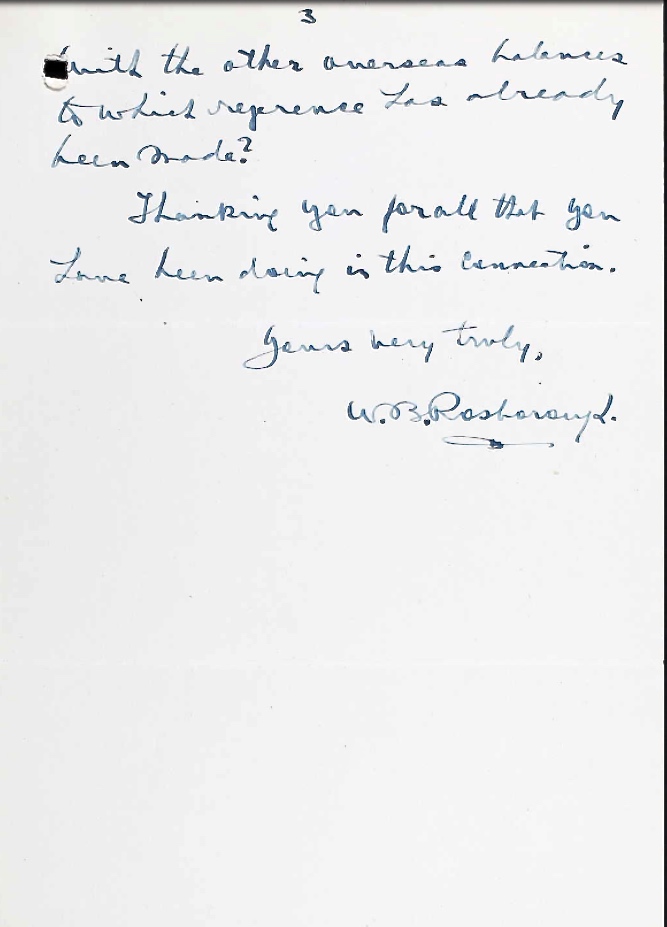 3
with the other overseas balances
to which reference has already
been made?
Thanking you for all that you
have been doing in this connection.
Yours very truly,
W. B. Rosborough.